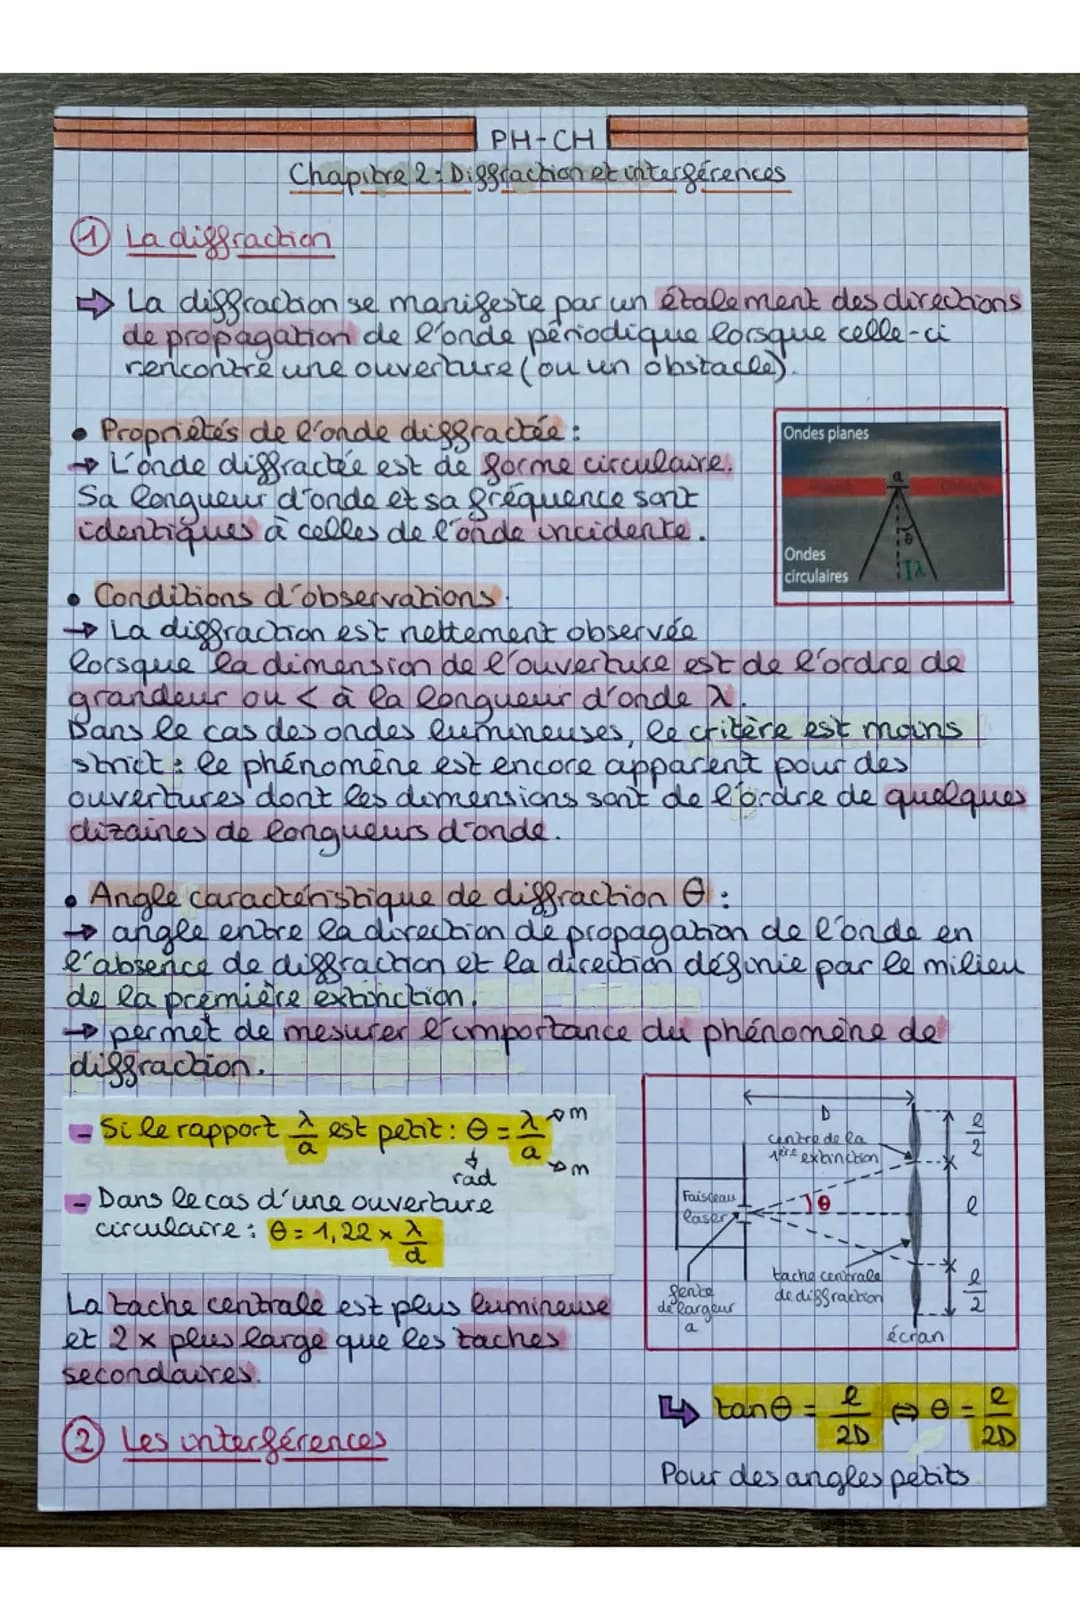 PH-CH
Chapitre 2: Diffraction et interférences
① La diffraction
⇨ La diffraction se manifeste par un étalement des directions
de propagation de l'onde périodique lorsque celle-ci
rencontre une ouverture (ou un obstacle).
• Propriétés de l'onde diffractée :
→ L'onde diffractée est de forme circulaire.
Sa longueur d'onde et sa fréquence sont
identiques à celles de l'onde incidente.
Ondes planes
a
θ
λ
Ondes
circulaires
• Conditions d'observations.
→ La diffraction est nettement observée
lorsque la dimension de l'ouverture est de l'ordre de
grandeur ou < à la longueur d'onde λ.
Dans le cas des ondes lumineuses, le critère est moins
strict : le phénomène est encore apparent pour des
ouvertures dont les dimensions sont de l'ordre de quelques
dizaines de longueurs d'onde.
• Angle caractéristique de diffraction θ :
→ angle entre la direction de propagation de l'onde en
l'absence de diffraction et la direction définie par le milieu
de la première extinction.
→ permet de mesurer l'importance du phénomène de
diffraction.
- Si le rapport λ/a est petit : θ = λ/a → m
rad → m
- Dans le cas d'une ouverture
circulaire : θ = 1,22 × λ/d
D
centre de la
1ère extinction
l/2
Faisceau
laser
θ
l
fente
de largeur
a
tache centrale
de diffraction
l/2
écran
La tache centrale est plus lumineuse
et 2 x plus large que les taches
secondaires.
↳ tanθ = l/2D ⇔ θ = l/2D
Pour des angles petits
② Les interférences